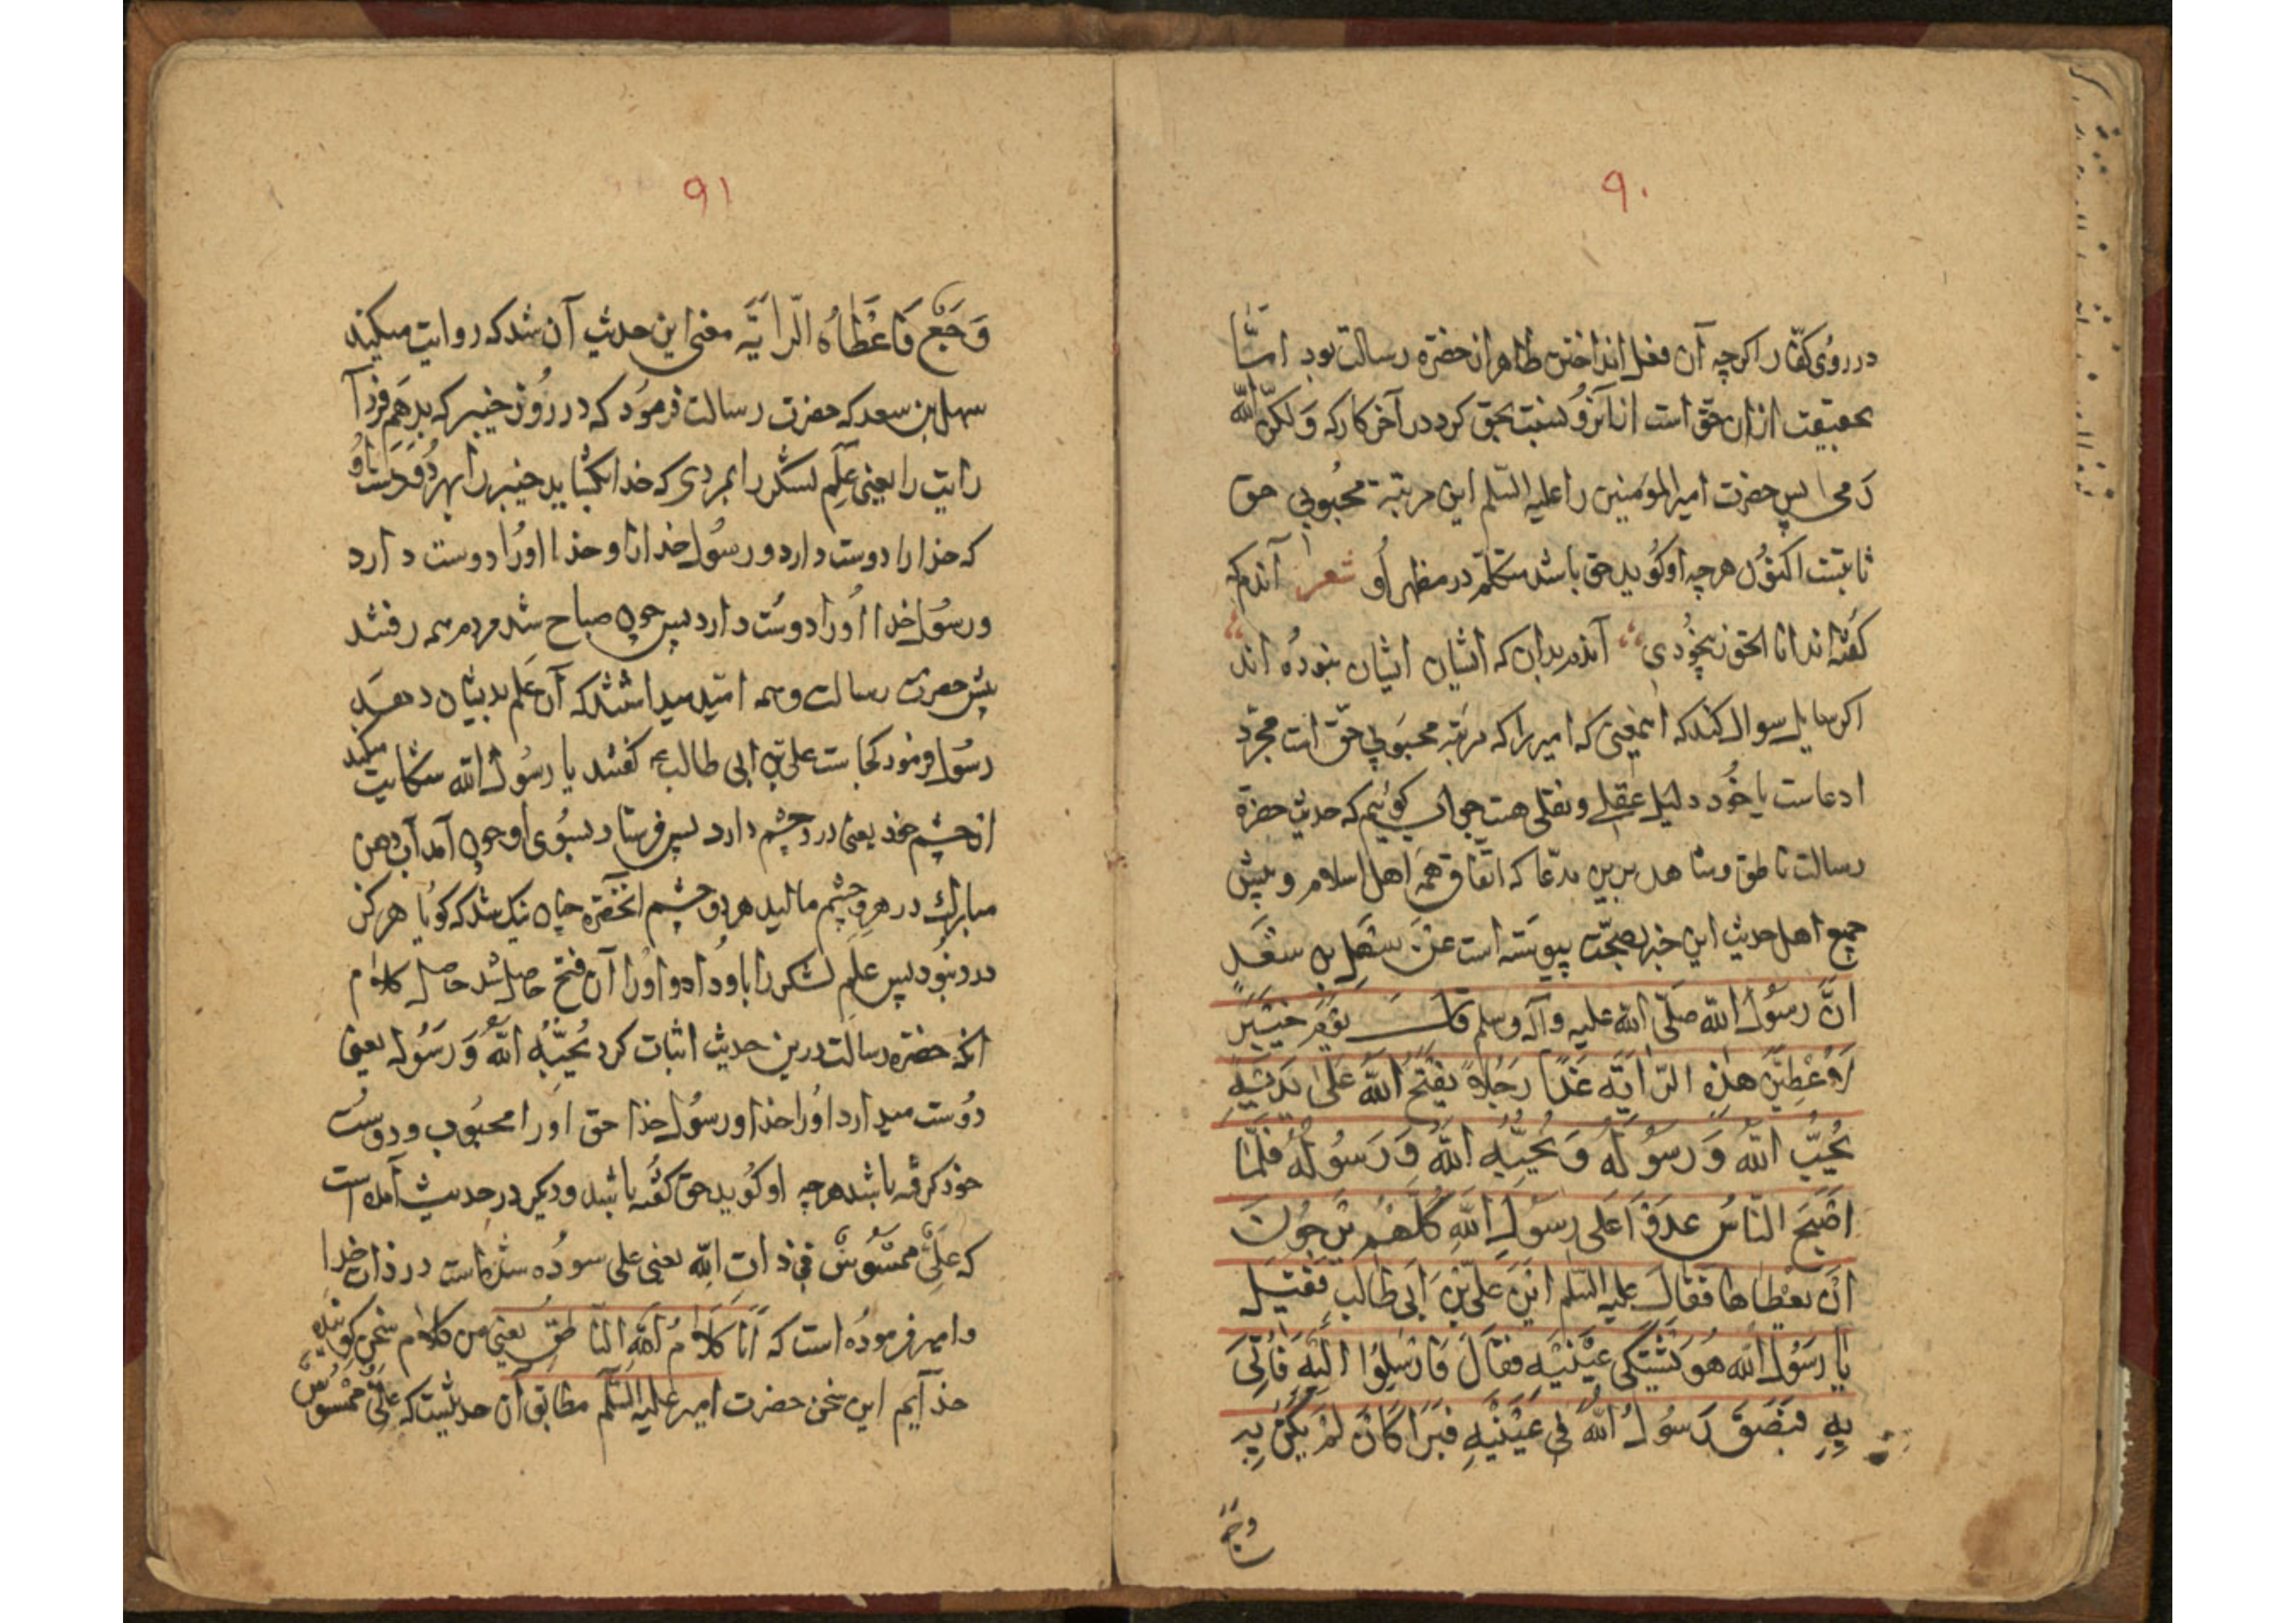 ۹۰
در روی کفّار اگرچه آن فعل انداختن ظاهر ازحضرة رسالت بود امّا
بحقیقت ازان حقّ است انابزو نسبت بحق کرد در آخر کار که وَلکنّ اللّه
رَمی پس حضرت امیرالمؤمنین را علیه السّلم این مرتبهٔ محبُوبی حق
ثابتست اکنوُن هرچه اوکوُید حق باشد متکلّم در مظهر اوُ شعر آندم که
کفُته اند انا الحق زبیخُودی آندم بدان که ایشان ایشان نبوُده اند
اکر سایل سوال کند که اینمعنی که امیر را که مرتبه محبَوبی حقّ است مجرّد
ادعاست یا خوُد دلیل عقلی و نقلی هست جواب کوئیم که حدیث حضرة
رسالت ناطق و شاهد برین مدّعا که اتّفاق همه اهل اسلام و پیش
جمیع اهل حدیث این خبر بصحّت پیوسته است عَنْ سَهْل بن سَعْدٍ
انَّ رسُولَ اللّه صَلّی اللّه علیه وآله وسلم قالَ یَوْمَ خَیْبَرَ
لَاُعْطِیَنَّ هٰذِهِ الرّٰایَةَ غَدًا رَجُلاً یَفْتَحُ اللّهُ عَلیٰ یَدَیْهِ
یُحِبُّ اللّهَ وَ رَسُولَهُ وَ یُحِبُّهُ اللّهُ وَ رَسُولُهُ فَلَمّا
اَصْبَحَ النّاسُ غدَوْا عَلی رسُولِ اللّهِ کُلّهُمْ یَرْجُونَ
اَنْ یعْطاها فَقالَ علیه السّلم اَیْنَ عَلیّ بْن اَبی طالبٍ فَقیلَ
یا رَسُولَ اللّه هُوَ یَشْتَکی عَیْنَیْهِ فَقالَ فَارْسِلُوا اِلَیْهِ فَاُتِیَ
بِهِ فَبَصَقَ رَسُولُ اللّهِ فی عَیْنَیْهِ فَبَرَا کَانْ لَمْ یَکُنْ بِهِ
وَجَع
۹۱
وَجَعٌ فَاعْطاهُ الرّایَةَ معنی این حدیث آن شد که روایت میکند
سهل بن سعد که حضرت رسالت فرموُد که در روُز خیبر که بدهَم فردآ
رایت را یعنی عَلَم لشکر را بمردی که خدا بکشاید خیبر را بهر دُو دَست او
که خدا را دوست دارد و رسُول خدا را و خدا اوُرا دوست دارد
و رسُول خدا اوُرا دوُست دارد پس چون صباح شد مردم همه رفتند
پیش حضرت رسالت وهمه امّید میداشتند که آن عَلَم بدیشان دهد
رسُول فرمود کجاست علی بن ابی طالب کفتند یا رسُول اللّه شکایت میکند
از چشم خود یعنی درد چشم دارد پس فرستاد بسوُی او چون آمد آب دهن
مبارک در هر دو چشم مالید هردو چشم آنحضرة چنان نیک شد که کویا هرکز
درد نبوُد پس عَلَم لشکر را باو داد و اوُرا آن فتح حاصل شد حاصل کلام
آنکه حضرة رسالت درین حدیث اثبات کرد یُحبُّهُ اللّهُ وَ رَسُوله یعنی
دوُست میدارد اوُرا خدا و رسُول خدا حق اورا محبُوب و دوست
خود کرفته باشد هرچه او کوُید حق کفُته باشد ودیکر در حدیث آمده است
که عَلِیٌّ مَمْسُوسٌ فی ذاتِ اللّه یعنی علی سوُده شده است در ذات خدا
و امیر فرموده است که اَنَا کَلامُ اللّهِ النّاطِق یعنی من کلام سخن کوینده
خدآیم این سخن حضرت امیر علیه السّلم مطابق آن حدیثیست که علیٌّ مَمْسُوسٌ